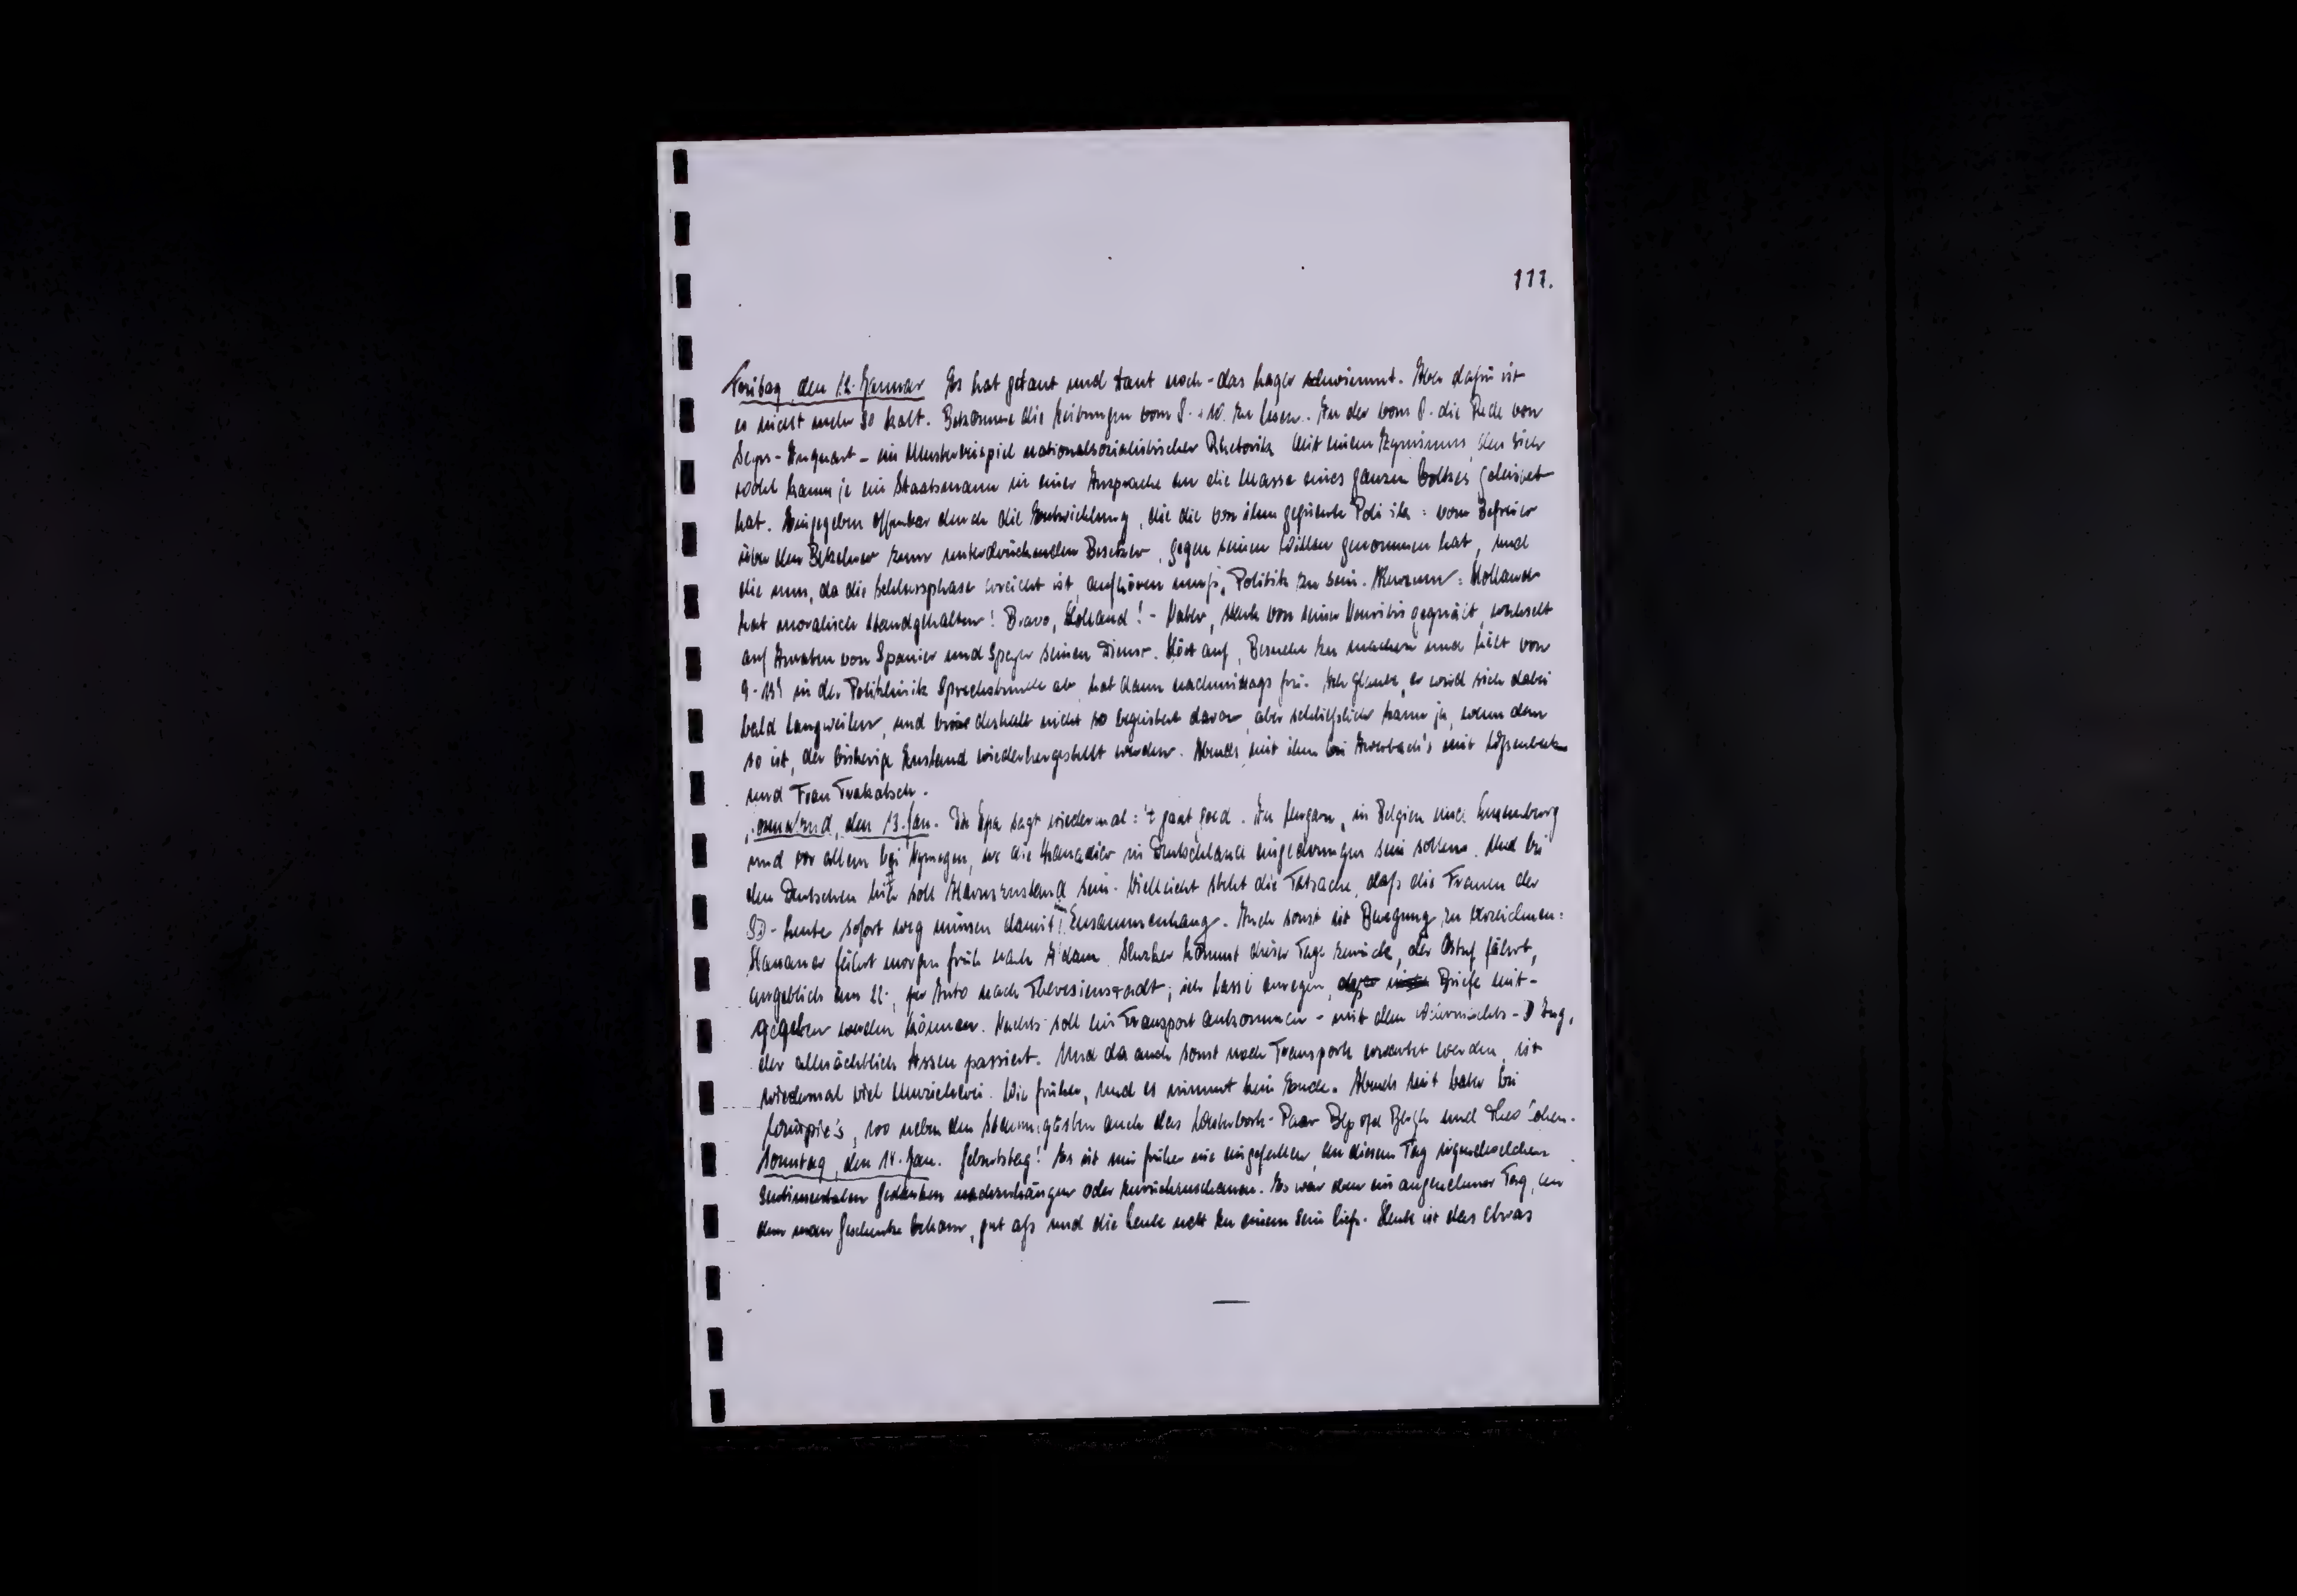 111.
Freitag, den 12. Januar Es hat getaut und taut noch - das Lager schwimmt. Aber dafür ist
es nicht mehr so kalt. Bekomme die Zeitungen vom 8. + 10. zu lesen. In der vom 8. die Rede von
Seyss-Inquart - ein Musterbeispiel nationalsozialistischer Rhetorik mit einem Zynismus, den sich
wohl kaum je ein Staatsmann in einer Ansprache an die Masse eines ganzen Volkes geleistet
hat. Eingegeben offenbar durch die Entwicklung, die die von ihm geführte Politik: vom Befreier
über den Bekehrer zum unterdrückenden Besetzer, gegen seinen Willen genommen hat, und
die nun, da die Schlussphase erreicht ist, aufhören muß, Politik zu sein. Holland
hat moralisch standgehalten! Bravo, Holland! - Vater, stark von seiner Neuritis gequält, wechselt
auf Anraten von Spanier und Speyer seinen Dienst. Hört auf, Besuche zu machen und hält von
9-13h in der Poliklinik Sprechstunde ab, hat dann nachmittags frei. Ich glaube, er wird sich dabei
bald langweilen, und bin deshalb nicht so begeistert davon, aber schließlich kann ja, wenn dem
so ist, der bisherige Zustand wiederhergestellt werden. Abends mit ihm bei mit
und Frau
Sonnabend, den 13. Jan. Die Ipa sagt wiedermal: 't gaat goed. In Ungarn, in Belgien und Luxemburg
und vor allem bei Nymegen, wo die Kanadier in Deutschland eingedrungen sein sollen. Und bei
den Deutschen hier soll Alarmzustand sein. Vielleicht steht die Tatsache, daß die Frauen der
SD-Leute sofort weg müssen damit i. Zusammenhang. Auch sonst ist Bewegung zu verzeichnen:
fährt morgen früh nach A'dam, kommt dieser Tage zurück, der Ostuf fährt,
angeblich am 22., per Auto nach Theresienstadt; ich lasse anregen, daß Briefe mit-
gegeben werden können. Nachts soll ein Transport ankommen - mit dem D Zug,
der allnächtlich Assen passiert. Und da auch sonst noch Transporte erwartet werden, ist
wiedermal viel Umzieherei. Wie früher, und es nimmt kein Ende. Abends mit Vater bei
wo neben den Stammgästen auch das Westerbork-Paar und
Sonntag, den 14. Jan. Geburtstag! Es ist mir früher nie eingefallen, an diesem Tag irgendwelchen
sentimentalen Gedanken nachzuhängen oder zurückzuschauen. Es war eben ein angenehmer Tag, an
dem man Geschenke bekam, gut aß und die Leute nett zu einem sein ließ. Heute ist das etwas